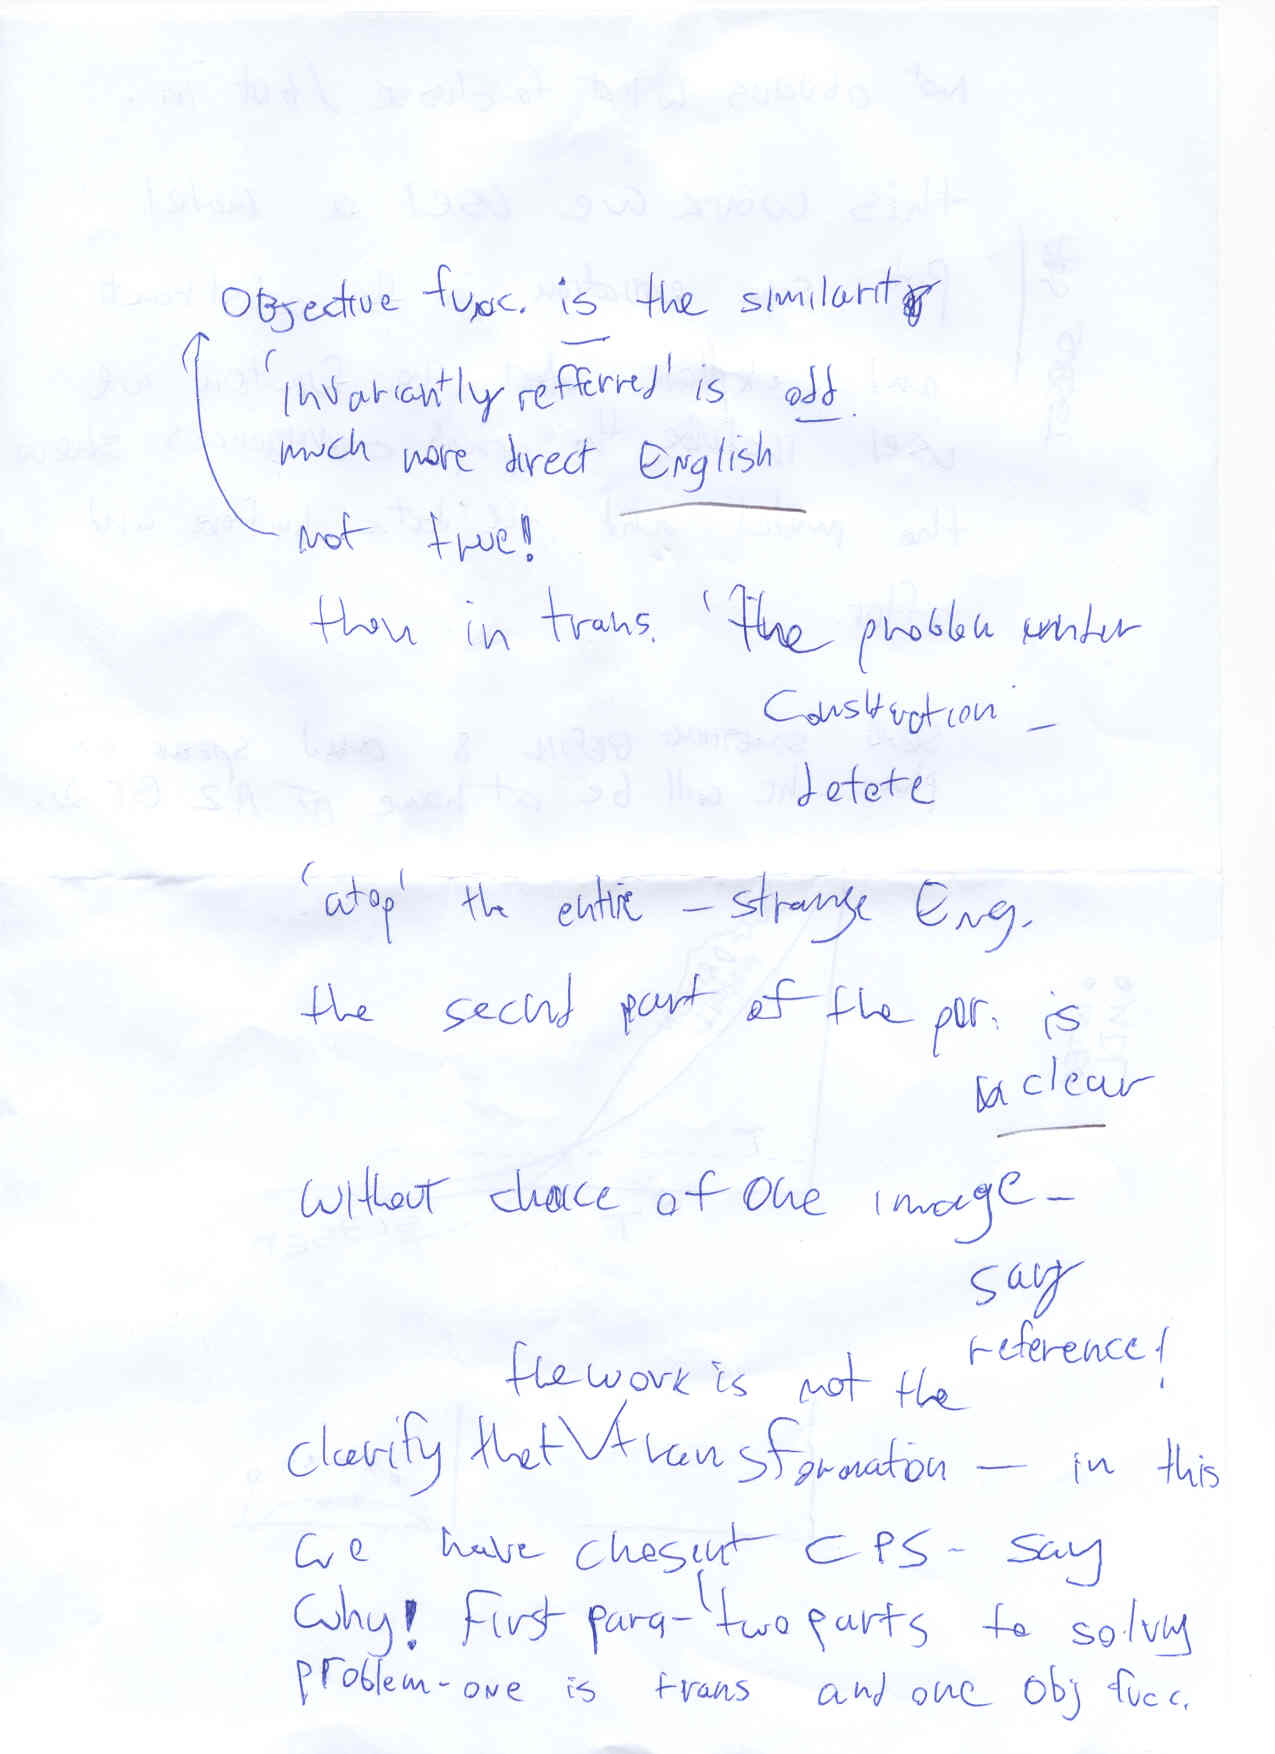 Objective func. is the similarity
'invariantly referred' is odd.
much more direct English
not true!
then in trans. 'The problem under
construction' –
delete
'atop' the entire – strange Eng.
the second part of the par. is
unclear
without choice of one image –
say
reference!
the work is not the
clarify that transformation – in this
we have chosen CPS – say
why! First para – 'two parts to solving
problem – one is trans and one obj func.